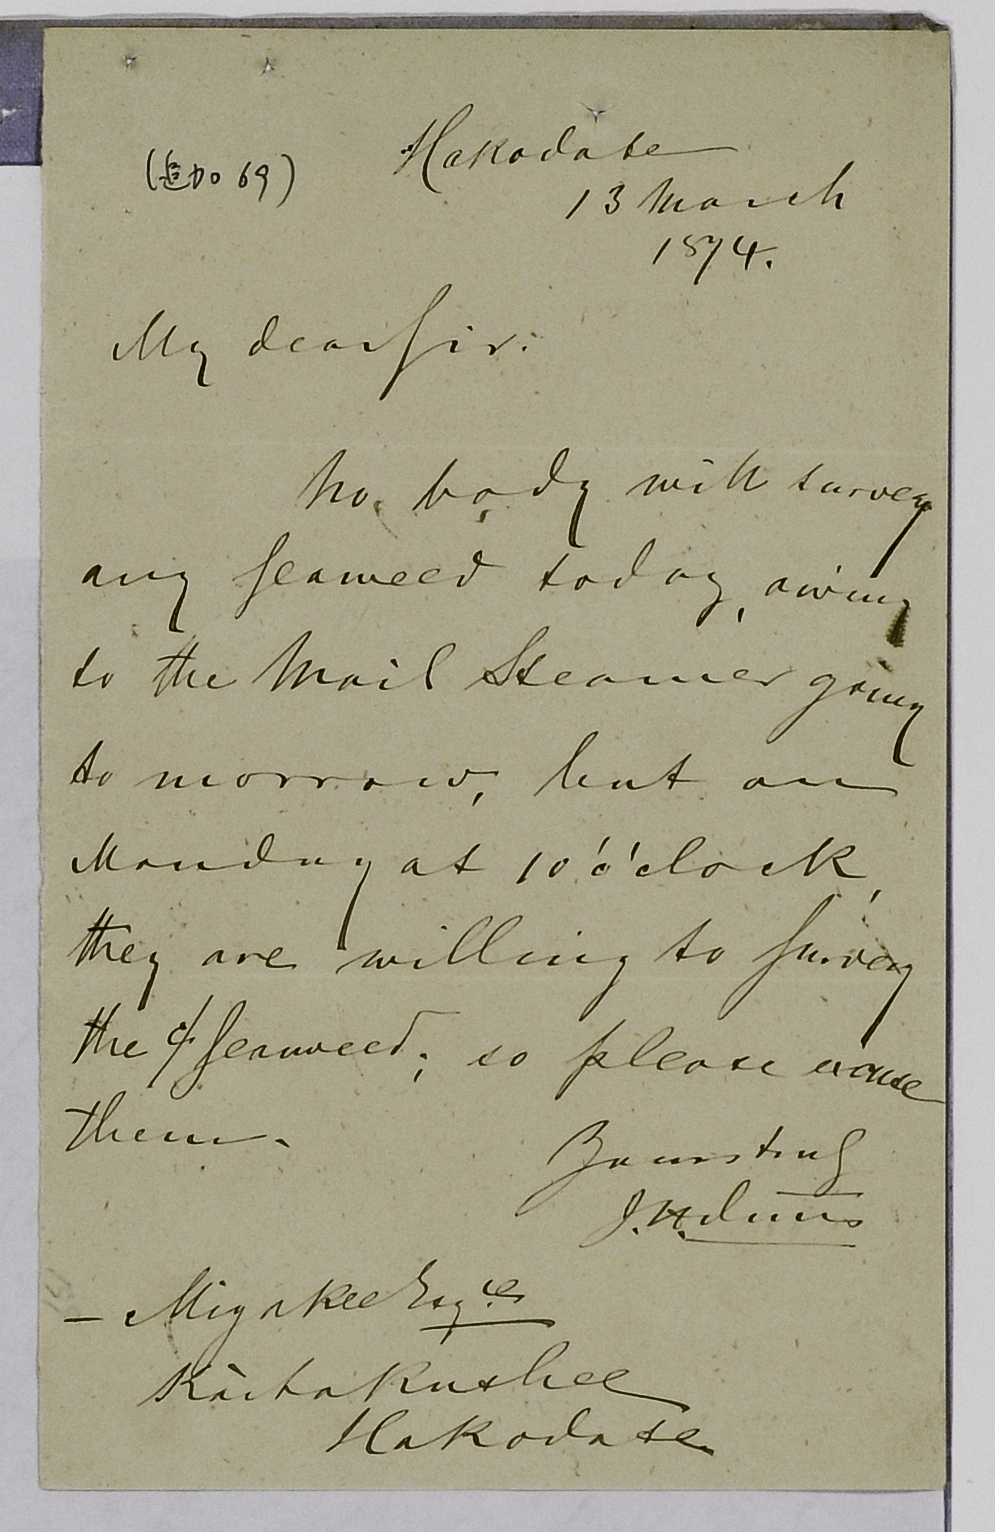 (追加 69)
Hakodate
13 March
1874.
My dear Sir.
No body will survey
any seaweed today, owing
to the Mail Steamer going
to morrow, but on
Monday at 10 o'clock,
they are willing to survey
the seaweed; so please excuse
them.
Yours truly
J. H. Duus
— Miyakee Esqre
Kaitakushee
Hakodate